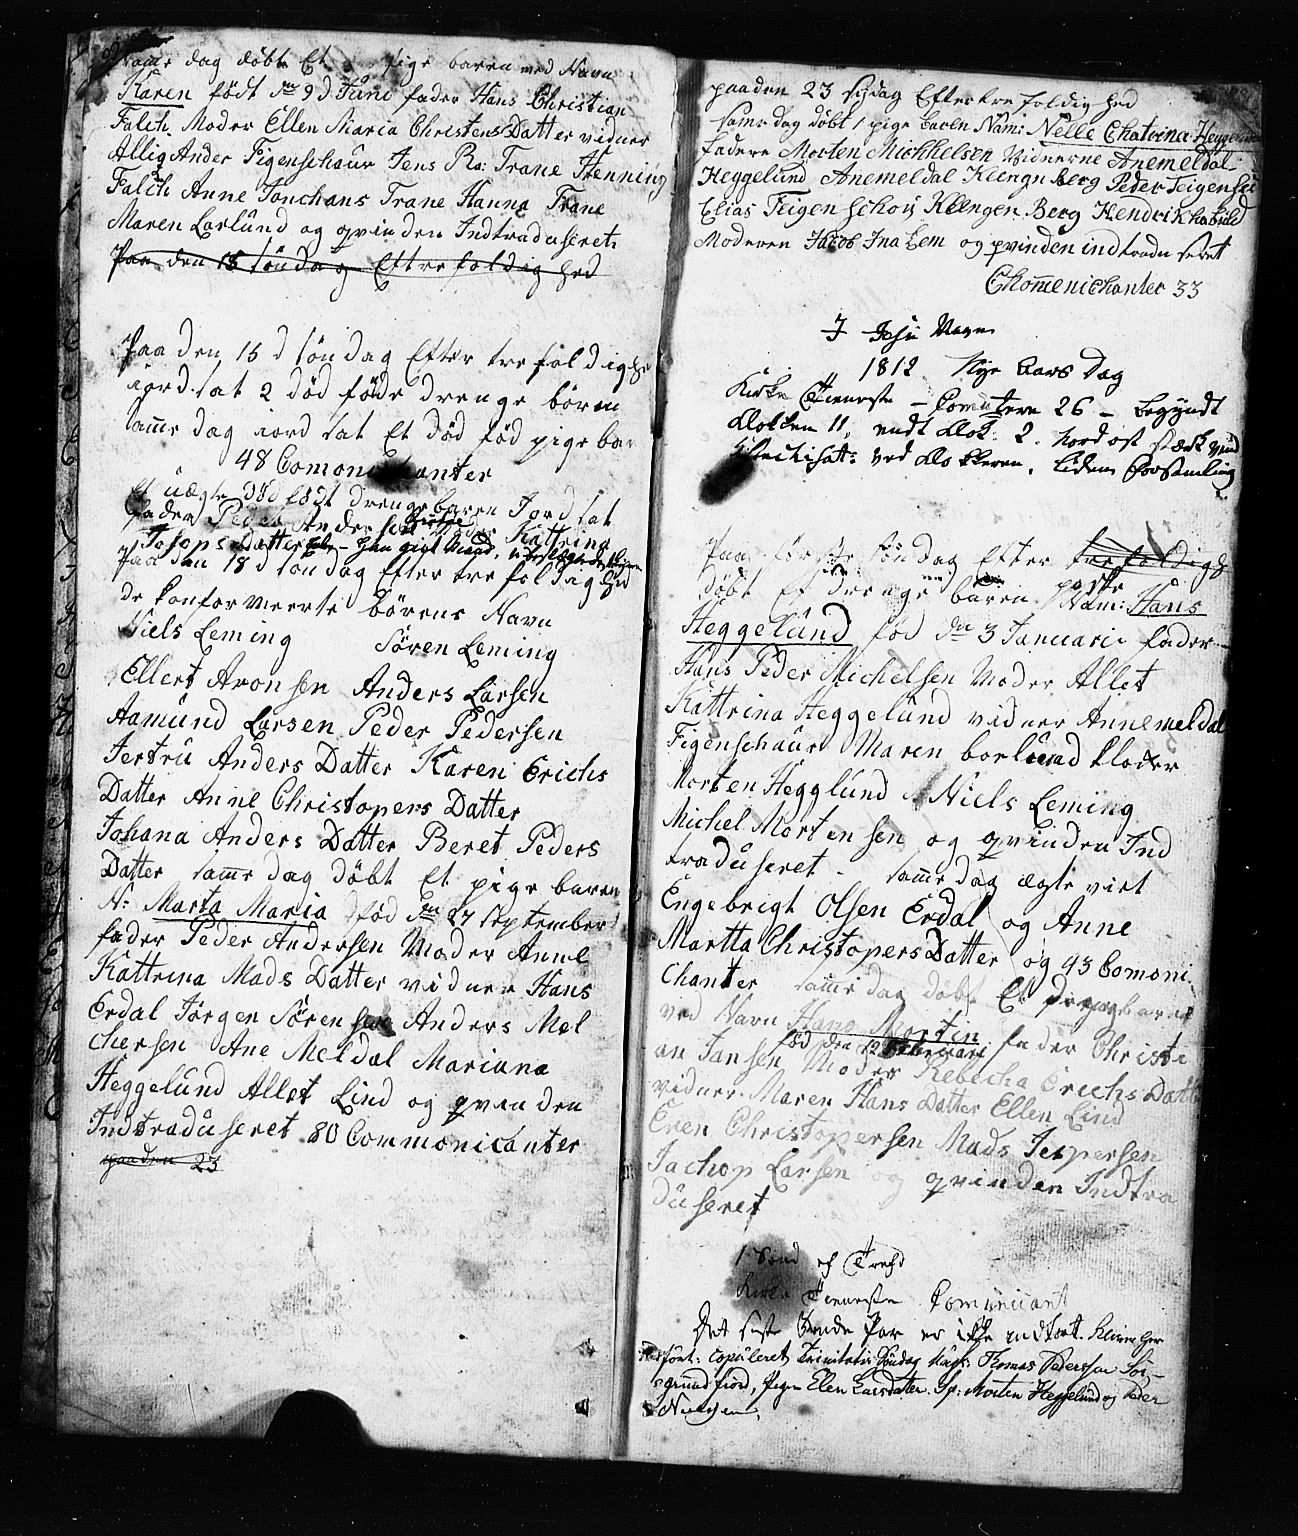 Samme dag döbt Et pige baren med Navn
Karen född den 9 d. Juni fader Hans Christian
Falch. Moder Ellen Maria Christens Datter vidner
Allig Ander Figenschaur Jens Ra: Trane Henning
Falch Anne Jonchans Trane Hanna Trane
Maren Lorlund og qvinden Indtraduseret
Paa den 15 söndag Eftre foldig hed
Paa den 15 d söndag Efter tre fold ighe
iord sat 2 död föde drenge bören
samme dag iord sat Et död föd pige bar
48 Comonechanter
Et uægte död födt drenge baren Jord sat
faderen Peder Andersen Moder Kattrina
Jakops Datter
Paa den 18 d söndag Efter tre foldig hed
de konfermeerte börens Navn
Niels Leming Sören Leming
Ellert Aronsen Anders Larsen
Aamund Larsen Peder Pedersen
Jertru Anders Datter Karen Erichs
Datter Anne Christopers Datter
Johana Anders Datter Beret Peders
Datter samme dag döbt Et pige baren
N: Marta Maria föd den 27 September
fader Peder Andersen Moder Anne
Kattrina Mads Datter vidner Hans
Erdal Jörgen Sörensen Anders Mel
chersen Ane Meldal Mariana
Heggelund Allet Lind og qvinden
Indtraduseret 80 Commonicanter
paaden 23
paaden 23 söndag Efter tre foldig hed
samme dag döbt 1 pige baren Nam: Nelle Chatrina Heggelund
fadere Morten Mickhelsen vidnerne Anemeldal
Heggelund Anemeldal Kleengn Berg Peder Feigensco
Elias Feigen schou Kleengen Berg Hendrik
Moderen Jacob Ina Lem og qvinden indtradu seret
Chommenichanter 33
I Jesu Navn
1812 Nye Aars Dag
Kirke Tieneste - Comutere 26 - begyndt
Klokken 11, endt klok: 2. Nordost stærk vind
ved klokkeren. liden forsamling
Paa förste söndag Efter tre foldigh
paaske
döbt Et drenge baren Nam: Hans
Heggelund föd den 3 Januari fader
Hans Peder Michelsen Moder Allet
Kattrina Heggelund vidner Annemeldal
Figenschaur Maren borlund kloker
Morten Hegglund Niels Leming
Michel Mortensen og qvinden Ind
traduseret - samme dag ægte viet
Engebrigt Olsen Erdal og Anne
Martta Christopers Datter og 43 Comoni
chanter samme dag döbt Et drenge baren
ved Navn Hans Mortin fader Christi
föd den 12 Februari
an Jansen Moder Rebecka Erichs Datter
vidner Maren Hans Datter Ellen Lind
Even Christopersen Mads Jespersen
Jachop Larsen og qvinden Indtra
duseret
1 Sönd ef Trefd
Kirke Tieneste Comunicant
Det siste Brude Par er ikke indfört.
fört: copuleret Trinitatis Söndag Ungk: Thomas Pedersen Sör-
grundfiord, Pigen Elen Larsdatter. Sp: Morten Heggelund og Peder
Nielsen.